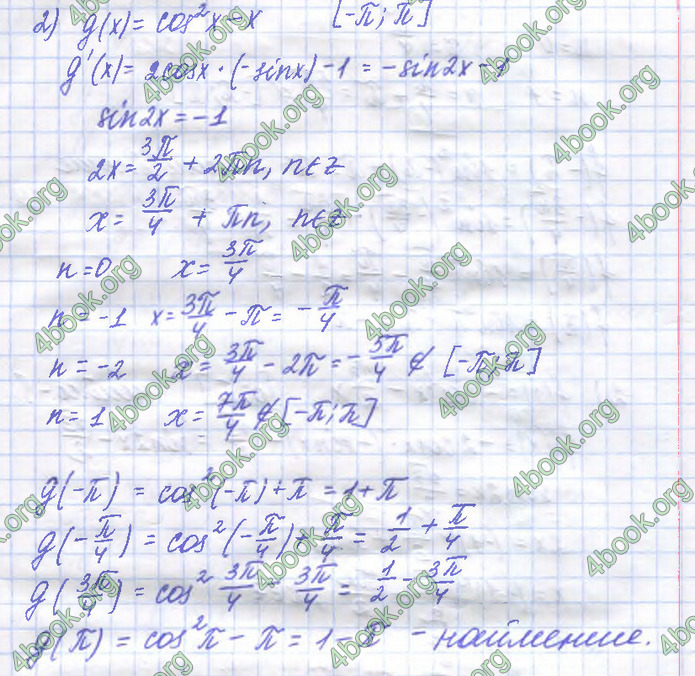 2) g(x) = cos²x - x [-π; π]
g'(x) = 2cosx · (-sinx) - 1 = -sin2x - 1
sin2x = -1
2x = 3π/2 + 2πn, n∈z
x = 3π/4 + πn, n∈z
n = 0 x = 3π/4
n = -1 x = 3π/4 - π = -π/4
n = -2 x = 3π/4 - 2π = -5π/4 ∉ [-π; π]
n = 1 x = 7π/4 ∉ [-π; π]
g(-π) = cos²(-π) + π = 1 + π
g(-π/4) = cos²(-π/4) + π/4 = 1/2 + π/4
g(3π/4) = cos² 3π/4 - 3π/4 = 1/2 - 3π/4
g(π) = cos²π - π = 1 - π - найменше.
4book.org